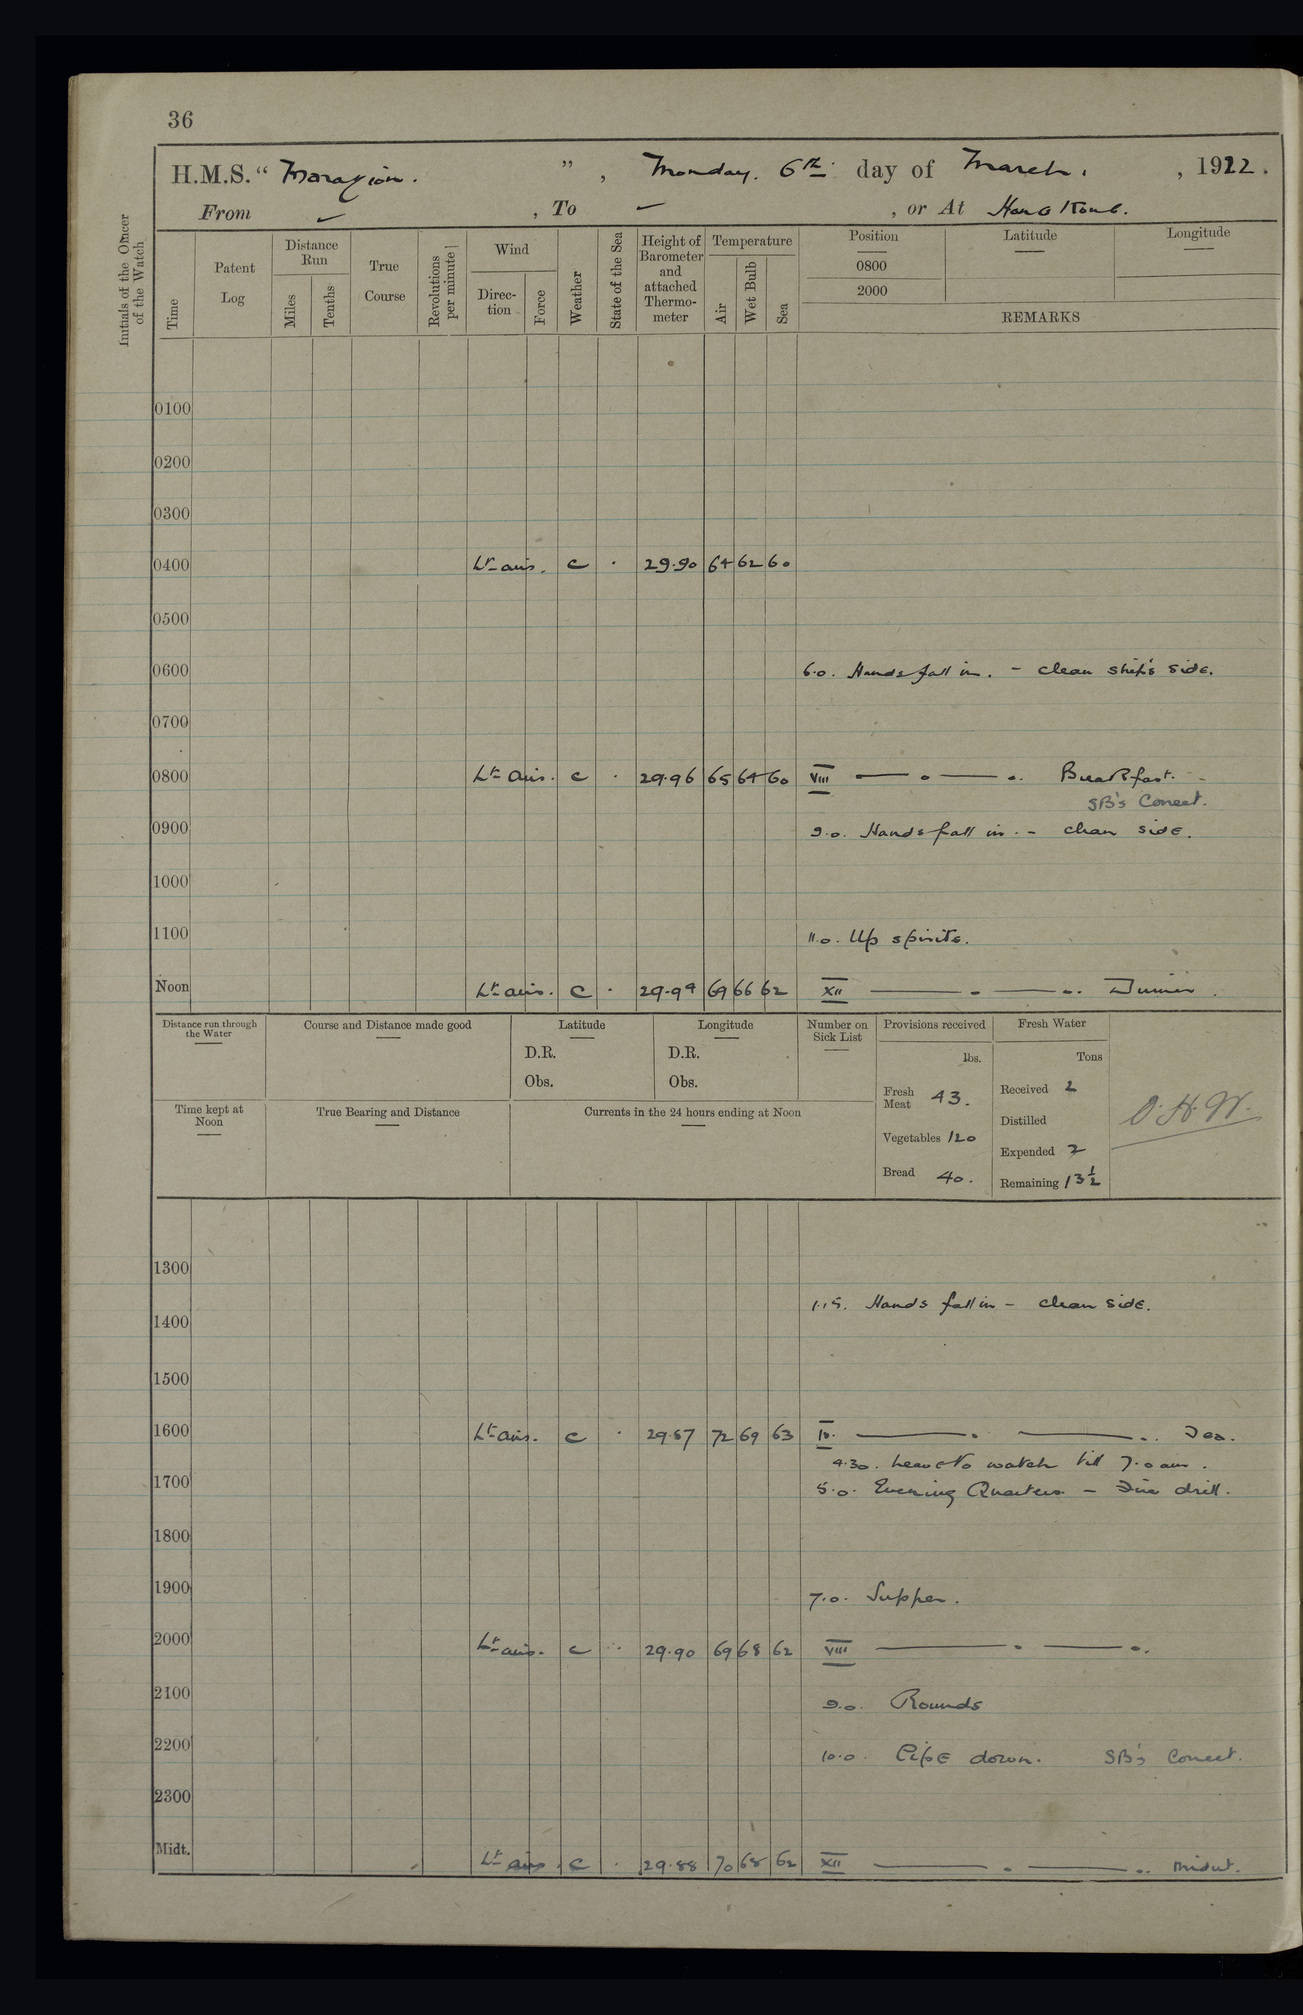 36
H.M.S. “ Marazion. ” , Monday. 6th day of March. , 1922.
From ✓ , To ✓ , or At Hong Kong.
Initials of the Officer of the Watch
Time
Patent Log
Distance Run
Miles
Tenths
True Course
Revolutions per minute
Wind
Direc-tion
Force
Weather
State of the Sea
Height of Barometer and attached Thermo-meter
Temperature
Air
Wet Bulb
Sea
Position
0800
2000
Latitude
Longitude
REMARKS
0100
0200
0300
0400 Lt airs. c . 29.90 64 62 60
0500
0600 6.0. Hands fall in. - clean ship's side.
0700
0800 Lt airs. c . 29.96 65 64 60 VIII Breakfast.
SB's Correct.
0900 9.0. Hands fall in. - clean side.
1000
1100 11.0. Up spirits.
Noon Lt airs. c . 29.94 69 66 62 XII Dinner.
Distance run through the Water
Course and Distance made good
Latitude
D.R.
Obs.
Longitude
D.R.
Obs.
Number on Sick List
Provisions received
lbs.
Fresh Meat 43.
Vegetables 120
Bread 40.
Fresh Water
Tons
Received 2
Distilled
Expended 2
Remaining 13 1/2
O.H.W.
Time kept at Noon
True Bearing and Distance
Currents in the 24 hours ending at Noon
1300
1.15. Hands fall in - clean side.
1400
1500
1600 Lt airs. c . 29.87 72 69 63 IV. Tea.
4.30. Leave to watch till 7.0 am.
1700 5.0. Evening Quarters - Fire drill.
1800
1900 7.0. Supper.
2000 Lt airs. c . 29.90 69 68 62 VIII
2100 9.0. Rounds
2200 10.0. Pipe down. SB's Correct.
2300
Midt. Lt airs. c . 29.88 70 68 62 XII Midnt.